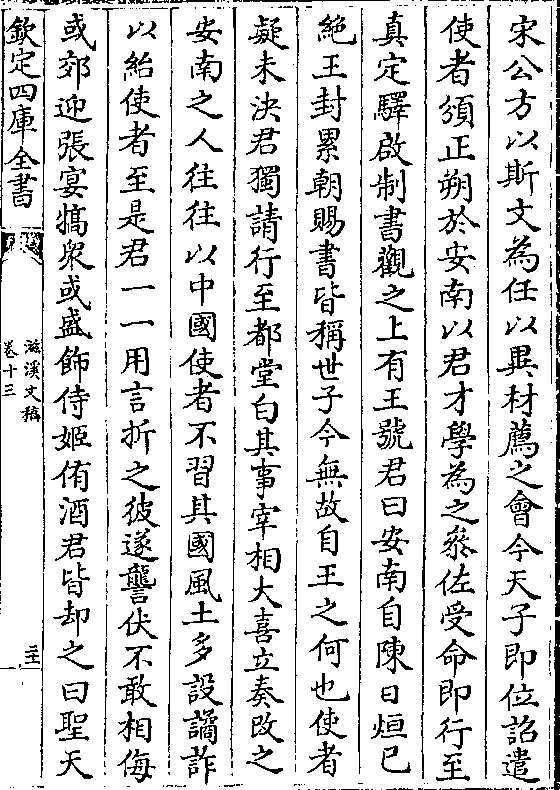 宋公方以斯文為任以異材薦之會今天子即位詔遣
使者頒正朔於安南以君才學為之叅佐受命即行至
真定驛啟制書觀之上有王號君曰安南自陳日烜已
絶王封累朝賜書皆稱世子今無故自王之何也使者
疑未決君獨請行至都堂白其事宰相大喜立奏改之
安南之人徃徃以中國使者不習其國風土多設譎詐
以紿使者至是君一一用言折之彼遂讋伏不敢相侮
或郊迎張宴犒衆或盛飾侍姬侑酒君皆却之曰聖天
欽定四庫全書
滋溪文稿
卷十三